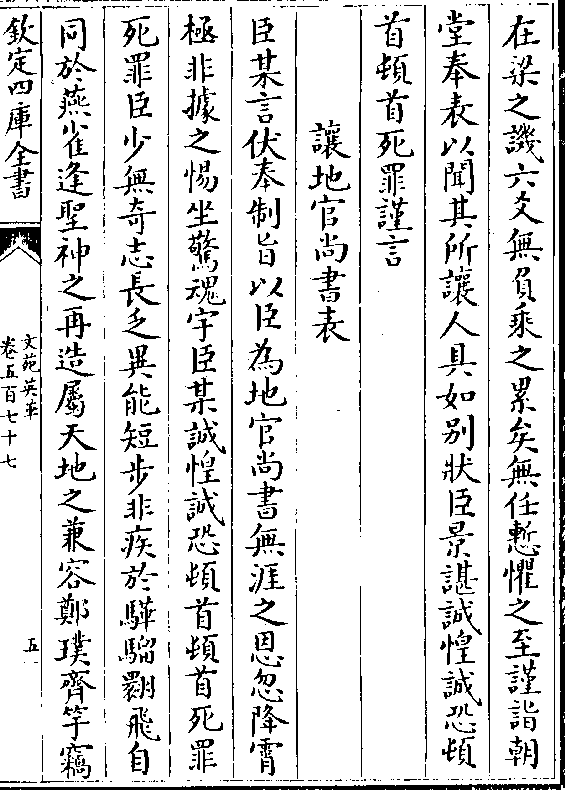 在梁之譏六爻無負乘之累矣無任慙懼之至謹詣朝
堂奉表以聞其所讓人具如别狀臣景諶誠惶誠恐頓
首頓首死罪謹言
讓地官尚書表
臣某言伏奉制旨以臣為地官尚書無涯之恩忽降霄
極非據之惕坐驚魂宇臣某誠惶誠恐頓首頓首死罪
死罪臣少無奇志長乏異能短步非疾於驊騮翾飛自
同於燕雀逢聖神之再造屬天地之兼容鄭璞齊竽竊
欽定四庫全書
文苑英華
卷五百七十七
五